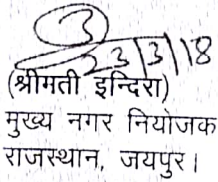 23/3/18
(श्रीमती इन्दिरा)
मुख्य नगर नियोजक
राजस्थान, जयपुर।